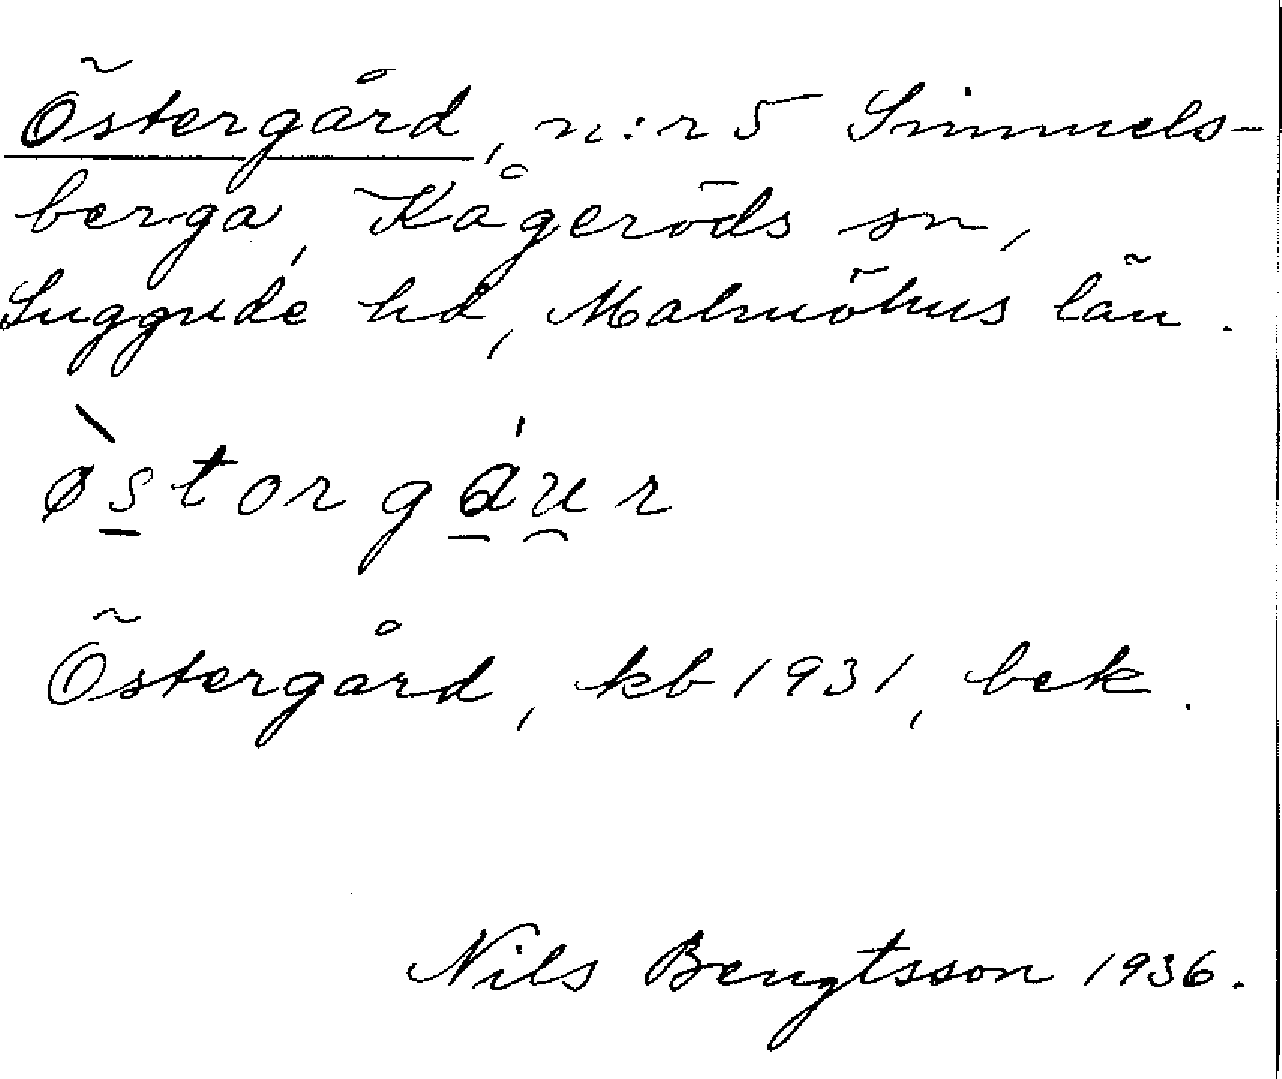 Östergård, n:r 5 Simmels-
berga, Kågeröds sn,
Luggude hd, Malmöhus län.
ø̀s̱torgá̱u̯r
Östergård, kb 1931, bek.
Nils Bengtsson 1936.